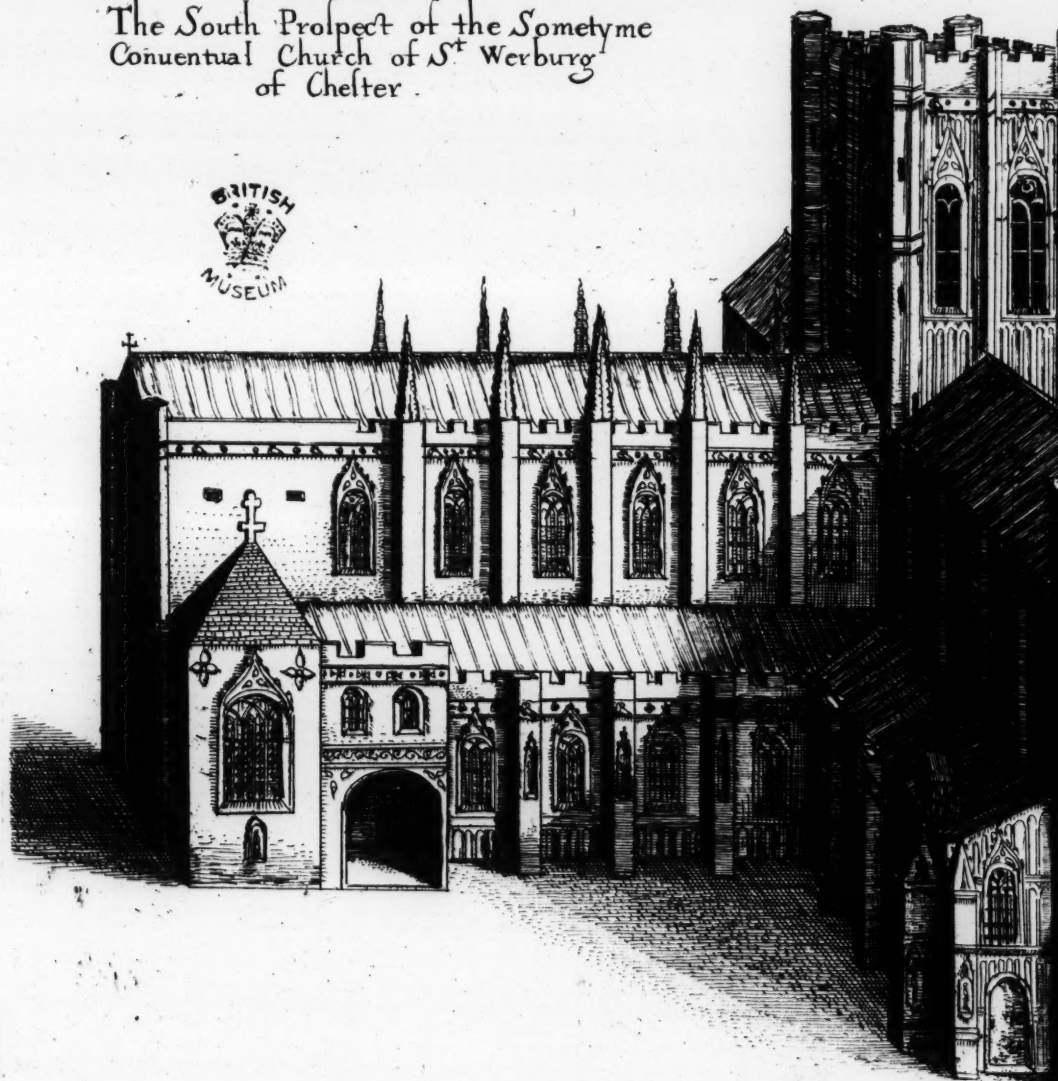 The South Proſpect of the Sometyme
Conuentual Church of Sᵗ Werburg
of Cheſter .
BRITISH
MUSEUM